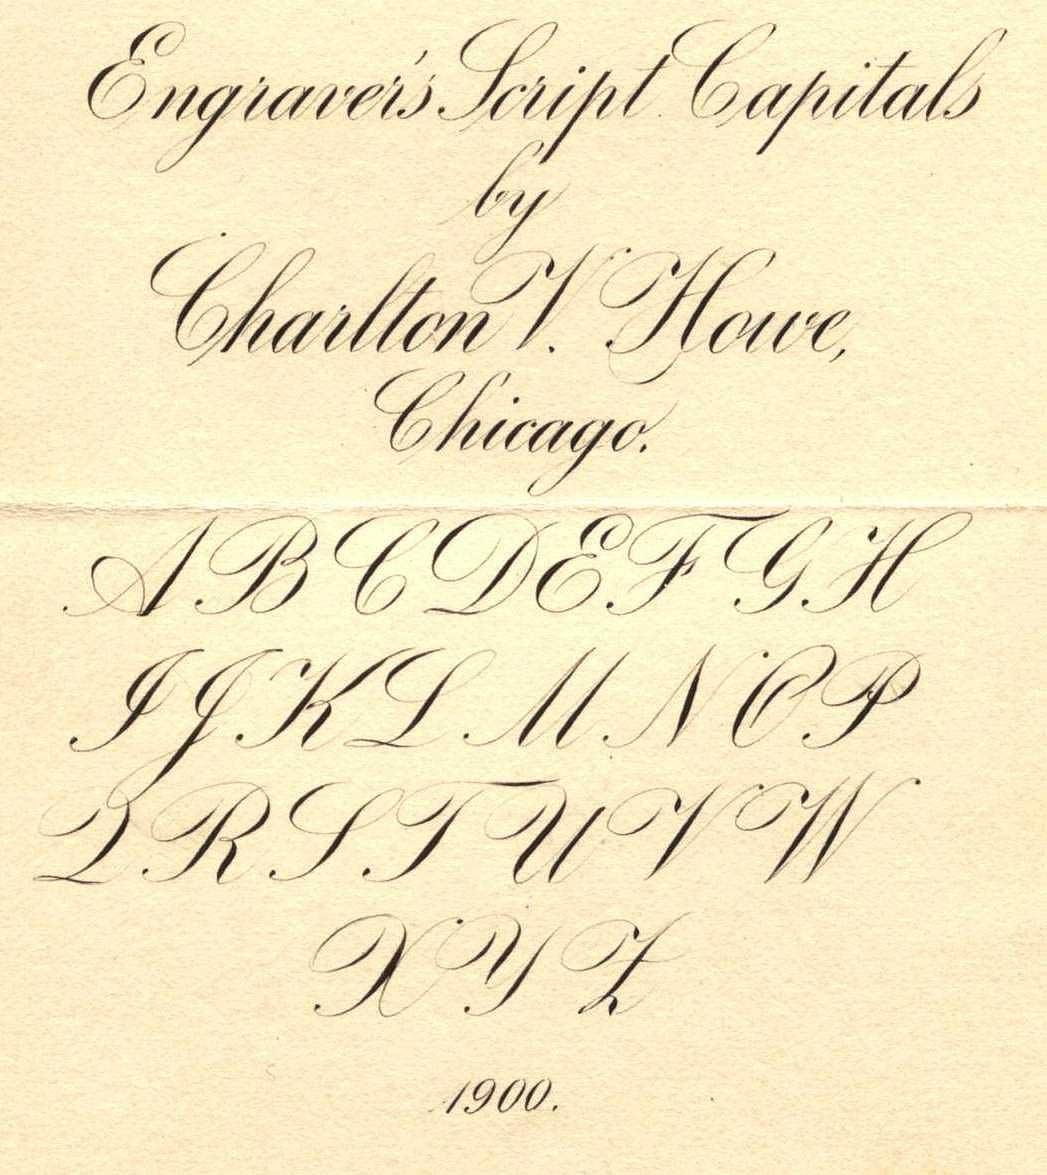 Engraver's Script Capitals
by
Charlton V. Howe,
Chicago.
A B C D E F G H
I J K L M N O P
Q R S T U V W
X Y Z
1900.